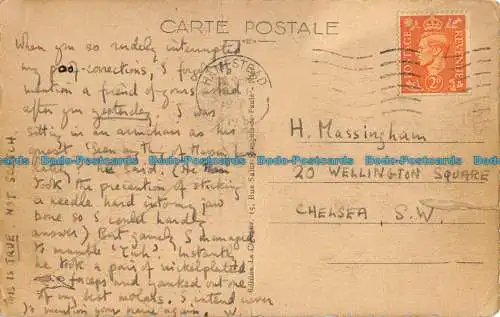 CARTE POSTALE
When you so rudely interrupted
my poo-corrections, I forgot to
mention a friend of yours asked
after you yesterday. I was
sitting in an armchair as his
guest. (Seen anything of Massingham
lately? he said. (He
took the precaution of sticking
a needle hard into my jaw
bone so I could hardly
answer) But gamely I managed
to mumble "Tich". Instantly
he took a pair of nickelplated
forceps and yanked out one
of my best molars. I intend never
to mention your name again. W.
THIS IS TRUE. NOT SCOTCH.
H. Massingham
20 WELLINGTON SQUARE
CHELSEA, S.W.
POSTAGE
REVENUE
2D
bbs-postcards.com
Bbs-Postcards